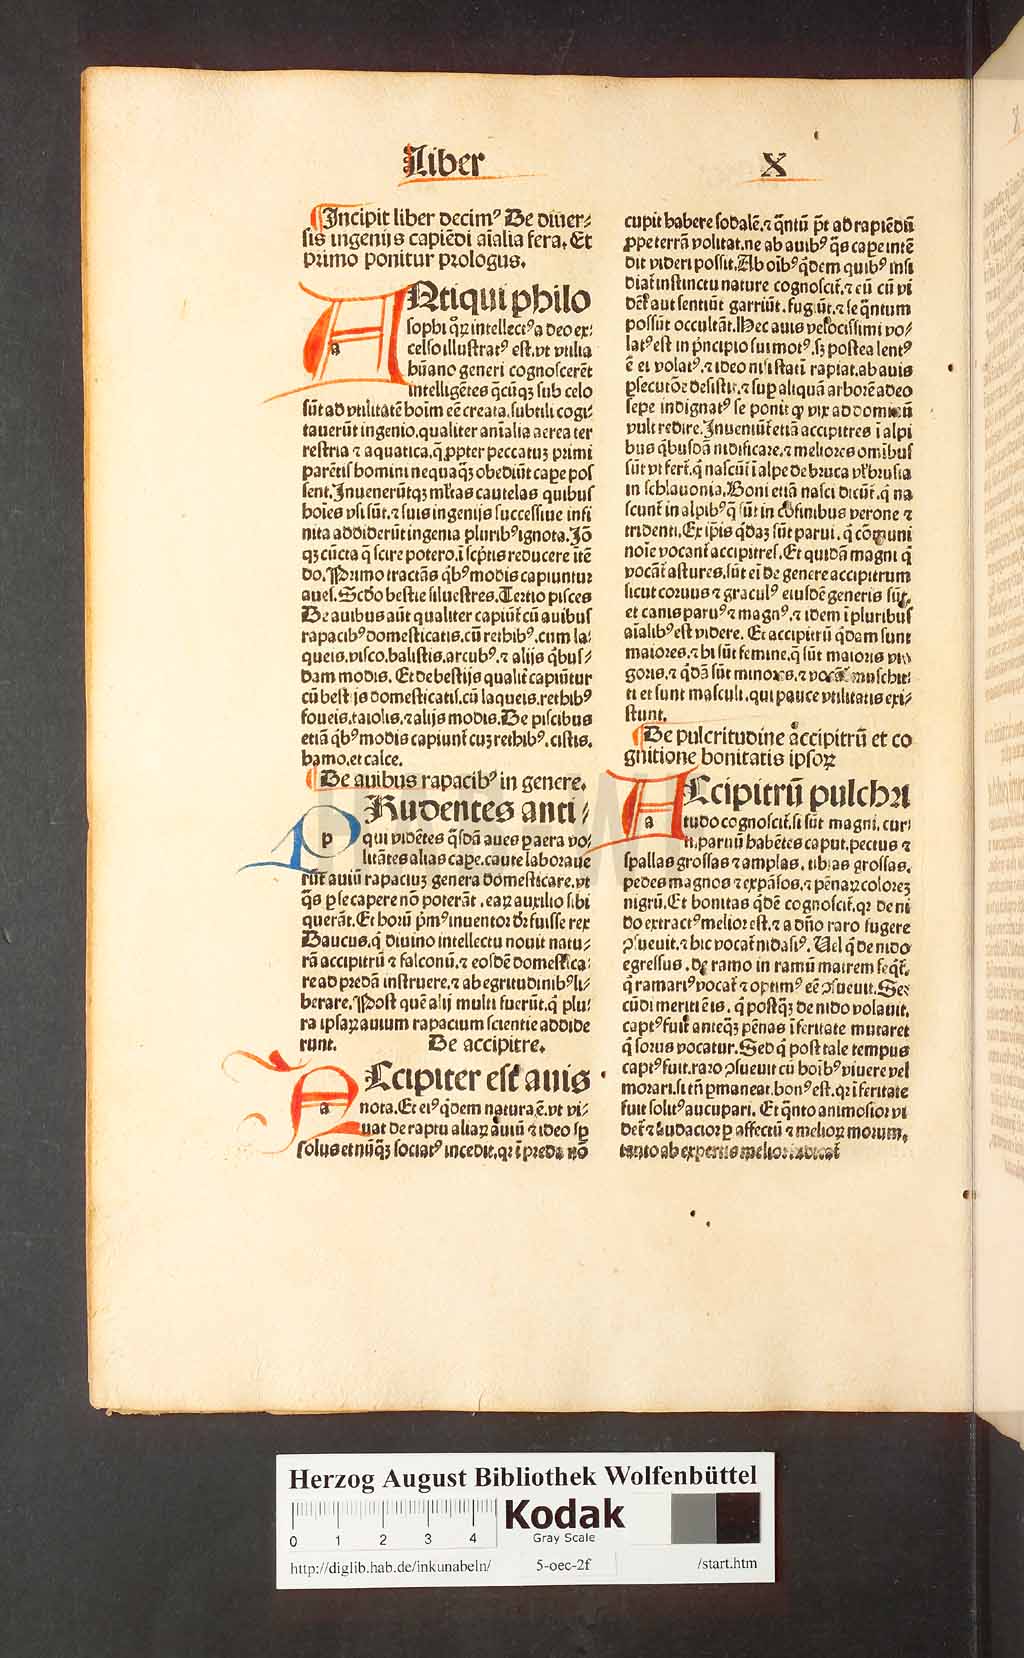 Liber X
Incipit liber decimꝰ De diuer⸗
sis ingenijs capiẽdi aĩalia fera. Et
primo ponitur prologus.
ANtiqui philo
sophi qꝛ̃ intellectꝰ a deo ex⸗
celso illustratꝰ est. vt vtilia
hũano generi cognoscerẽt
intelligẽtes q̃cũqꝫ sub celo
sũt ad vtilitatẽ hoĩm eẽ creata. subtili cogi⸗
tauerũt ingenio. qualiter aĩalia aerea ter
restria ⁊ aquatica. q̃ ꝓpter peccatuꝫ primi
parẽtis homini nequaqꝫ̃ obediũt cape pos
sent. Inuenerũtqꝫ ml̃tas cautelas quibus
hoĩes vsi sũt. ⁊ suis ingenijs successiue infi
nita addiderũt ingenia pluribꝰ ignota. Iõ
qꝫ cũcta q̃ scire potero. ĩ sc̃ptis reducere ĩtẽ
do. Primo tractãs q̃bꝰ modis capiuntur
aues. Sc̃do bestie siluestres. Tertio pisces
De auibus aũt qualiter capiũt̃ cũ auibus
rapacibꝰ domesticatis. cũ rethibꝰ. cum la⸗
queis. visco. balistis. arcubꝰ. ⁊ alijs q̃bus⸗
dam modis. Et de bestijs qualit̃ capiũtur
cũ bestijs domesticatis. cũ laqueis. rethibꝰ
foueis. taiolis. ⁊ alijs modis. De piscibus
etiã q̃bꝰ modis capiunt̃ cuꝫ rethibꝰ. cistis.
hamo. et calce.
De auibus rapacibꝰ in genere.
PRudentes anti⸗
qui vidẽtes q̃sdã aues ꝑ aera vo⸗
litãtes alias cape. caute laboraue
rũt auiũ rapaciuꝫ genera domesticare. vt
q̃s ꝑ se capere nõ poterãt. eaꝝ auxilio sibi
querãt. Et horũ p̃mꝰ inuentor dr̃ fuisse rex
Daucus. q̃ diuino intellectu nouit natu⸗
rã accipitrũ ⁊ falconũ. ⁊ eosdẽ domestica⸗
re ad predã instruere. ⁊ ab egritudinibꝰ li⸗
berare. Post quẽ alij multi fuerũt. q̃ plu⸗
ra ipsaꝝ auium rapacium scientie addide
runt. De accipitre.
ACcipiter est auis
nota. Et eiꝰ q̃dem natura ẽ. vt vi⸗
uat de raptu aliaꝝ auiũ ⁊ ideo sꝑ
solus et nũqꝫ̃ sociatꝰ incedit. qꝛ ĩ preda nõ
cupit habere sodalẽ. ⁊ q̃ntũ p̃t ad rapiẽdũ
ꝓpe terrã volitat. ne ab auibꝰ q̃s cape intẽ
dit videri possit. Ab oĩbꝰ q̃dem quibꝰ insi
diat̃ instinctu nature cognoscit̃. ⁊ cũ cũ vi
dẽt aut sentiũt garriũt. fugiũt. ⁊ se q̃ntum
possũt occultãt. Hec auis velocissimi vo⸗
latꝰ est in p̃ncipio sui motꝰ. sꝫ postea lentꝰ
ẽ ei volatꝰ. ⁊ ideo nisi statĩ raptat. ab auis
ꝑsecutiõe desistit. ⁊ suꝑ aliquã arborẽ adeo
sepe indignatꝰ se ponit ꝙ vix ad dominũ
vult redire. Inueniũt̃ etiã accipitres ĩ alpi
bus q̃busdã nidificare. ⁊ meliores omĩbus
sũt vt fert̃. q̃ nascũt̃ ĩ alpe de bruca vl̃ brusia
in schlauonia. Boni etiã nasci dicũt̃. q̃ na
scunt̃ in alpibꝰ q̃ sũt in cõfinibus verone ⁊
tridenti. Ex ip̃is q̃daꝫ sũt parui. q̃ cõmuni
noĩe vocant̃ accipitres. Et quidã magni q̃
vocãt̃ astures. sũt eĩ de genere accipitrum
sicut coruus ⁊ graculꝰ eiusdẽ generis sũt.
et canis paruꝰ ⁊ magnꝰ. ⁊ idem ĩ pluribus
aĩalibꝰ est videre. Et accipitrũ q̃dam sunt
maiores. ⁊ hi sũt femine. q̃ sũt maioris vi⸗
goris. ⁊ q̃dã sũt minores. ⁊ vocãt̃ muscheti⸗
ti et sunt masculi. qui pauce vtilitatis exi⸗
stunt.
De pulcritudine accipitrũ et co
gnitione bonitatis ipsoꝝ
ACcipitrũ pulchri
tudo cognoscit̃. si sũt magni. cur⸗
ti. paruũ habẽtes caput. pectus ⁊
spallas grossas ⁊ amplas. tibias grossas.
pedes magnos ⁊ expãsos. ⁊ pẽnaꝝ coloreꝫ
nigrũ. Et bonitas q̃dẽ cognoscit̃. qꝛ de ni
do extractꝰ melior est. ⁊ a dño raro fugere
ꝯsueuit. ⁊ hic vocat̃ nidasiꝰ. Uel q̃ de nido
egressus. de ramo in ramũ matrem seq̃t̃.
q̃ ramariꝰ vocat̃ ⁊ optimꝰ eẽ ꝯsueuit. Se⸗
cũdi meriti ẽ is. q̃ postqꝫ̃ de nido volauit.
captꝰ fuit anteqꝫ̃ pẽnas ĩ feritate mutaret
q̃ sorus vocatur. Sed q̃ post tale tempus
captꝰ fuit. raro ꝯsueuit cũ hoĩbꝰ viuere vel
morari. si tñ ꝑmaneat. bonꝰ est. qꝛ ĩ feritate
fuit solitꝰ aucupari. Et q̃nto animosior vi
det̃ ⁊ audacior ꝑ affectũ ⁊ melioꝝ morum.
tanto ab expertis melior iudicat̃
Herzog August Bibliothek Wolfenbüttel
0 1 2 3 4
Kodak
Gray Scale
http://diglib.hab.de/inkunabeln/ 5-oec-2f /start.htm